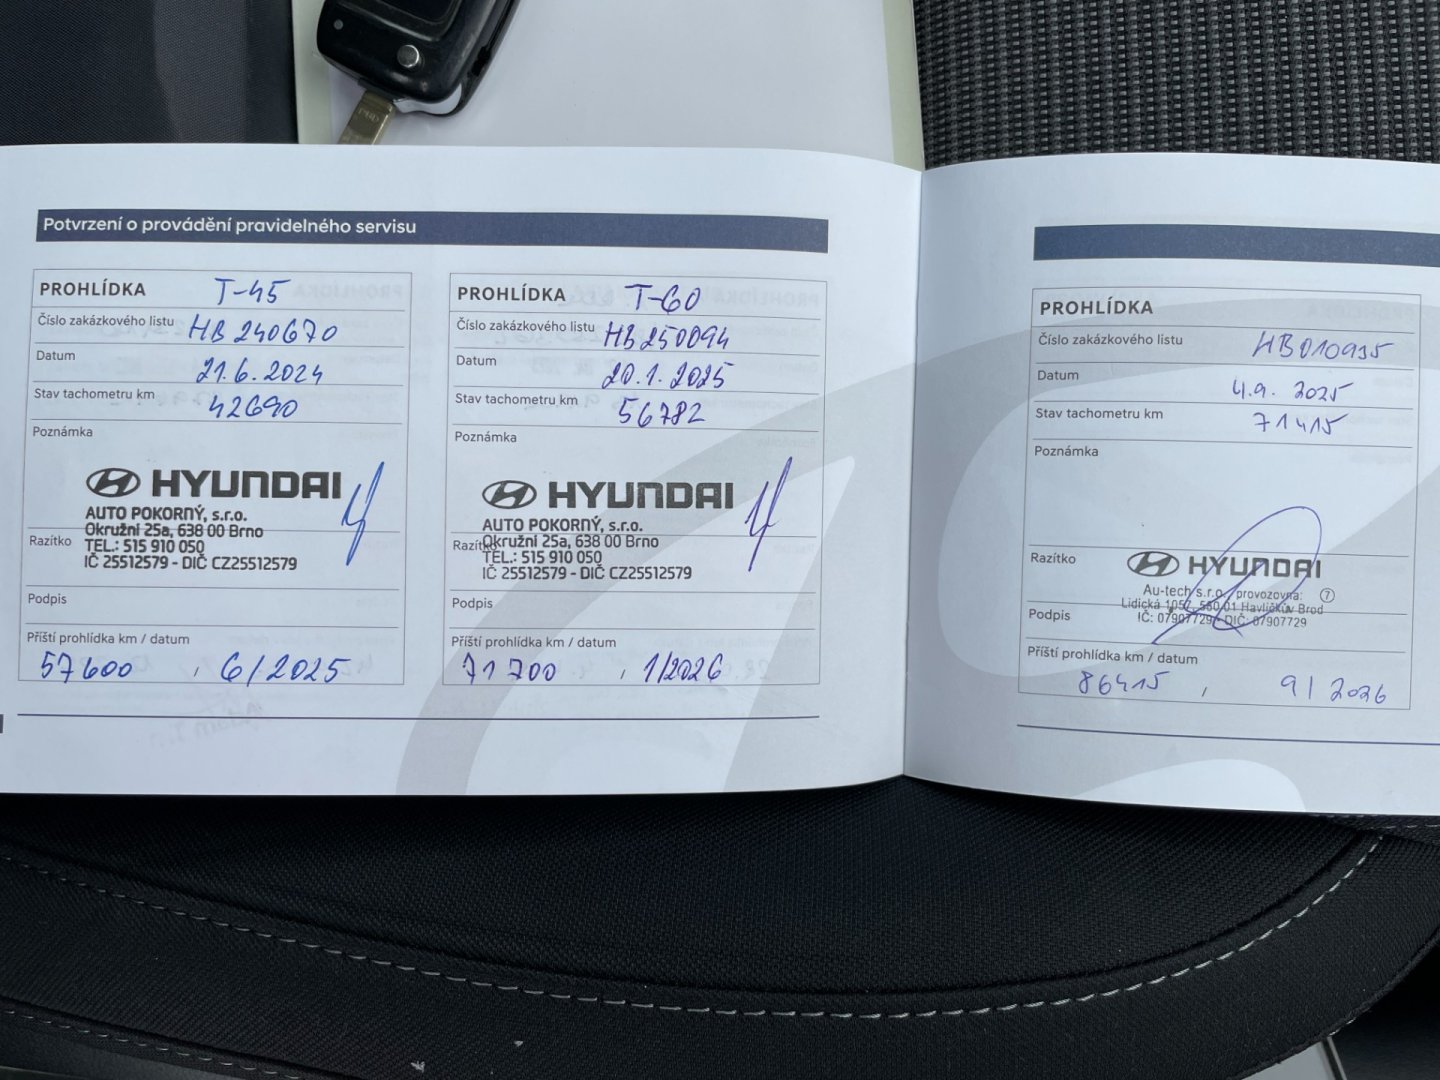 Potvrzení o provádění pravidelného servisu
PROHLÍDKA T-45
Číslo zakázkového listu HB 240670
Datum 21.6.2024
Stav tachometru km 42690
Poznámka
HYUNDAI
AUTO POKORNÝ, s.r.o.
Okružní 25a, 638 00 Brno
Razítko
TEL.: 515 910 050
IČ 25512579 - DIČ CZ25512579
Podpis
Příští prohlídka km / datum
57600 , 6/2025
PROHLÍDKA T-60
Číslo zakázkového listu HB250094
Datum 20.1.2025
Stav tachometru km 56782
Poznámka
HYUNDAI
AUTO POKORNÝ, s.r.o.
Okružní 25a, 638 00 Brno
Razítko
TEL.: 515 910 050
IČ 25512579 - DIČ CZ25512579
Podpis
Příští prohlídka km / datum
71700 , 1/2026
PROHLÍDKA
Číslo zakázkového listu HB010935
Datum 4.9. 2025
Stav tachometru km 71415
Poznámka
Razítko
HYUNDAI
Au-tech s.r.o., provozovna: 7
Lidická 1057, 580 01 Havlíčkův Brod
Podpis
IČ: 07907729 - DIČ: 07907729
Příští prohlídka km / datum
86415 , 9/2026